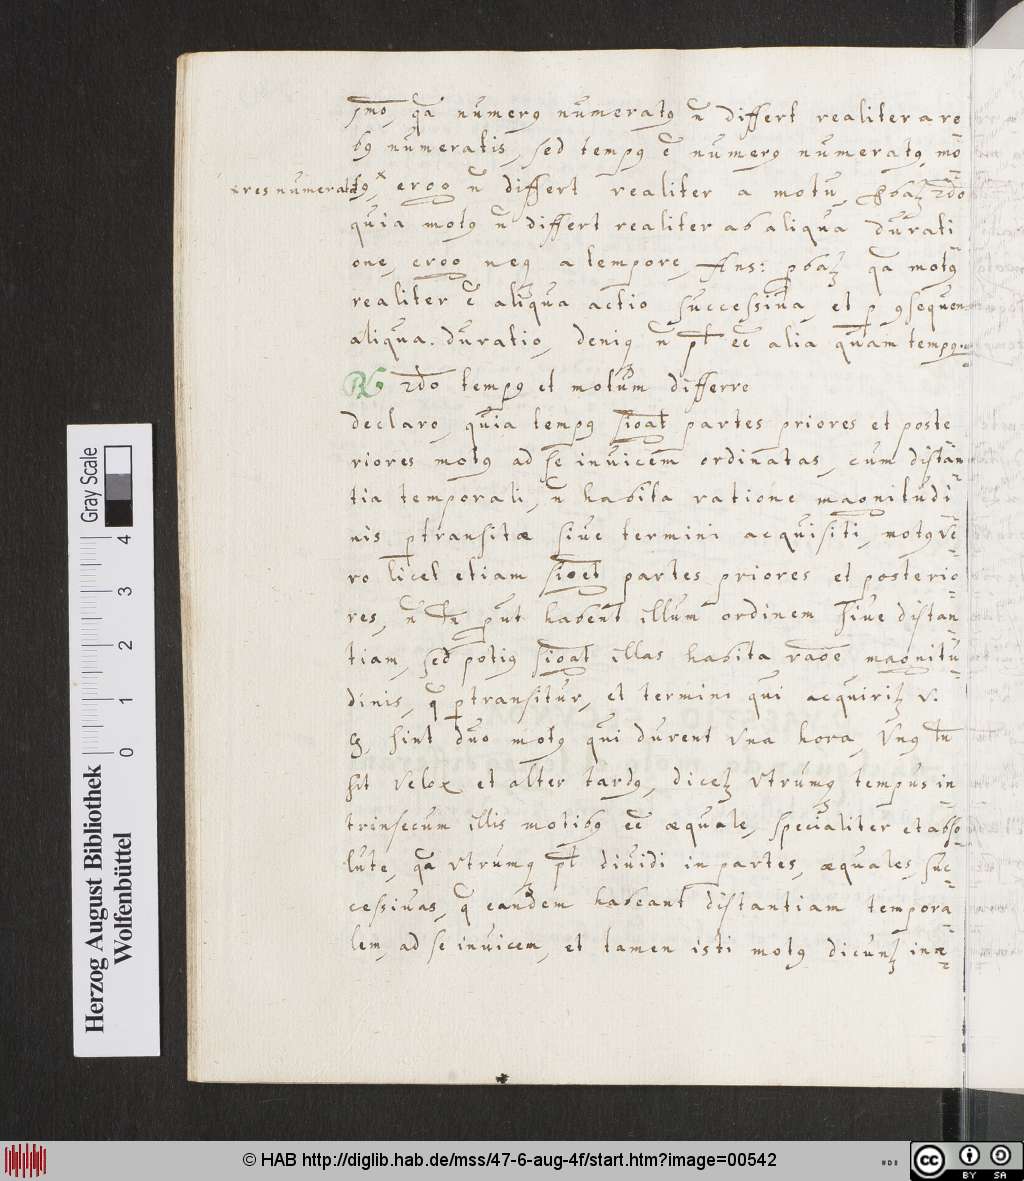 1mo, qa numerꝰ numeratꝰ ñ differt realiter a re
bꝰ numeratis, sed tempꝰ ē numerꝰ numeratꝰ, mo
× res numerata
tꝰ, × ergo ñ differt realiter a motu, pbaꝶ 2do
quia motꝰ ñ differt realiter ab aliqua durati
one, ergo neq a tempore, Ans: pbaꝶ qa motꝰ
realiter ē aliqua actio successiua, et p ꝯsequen
aliqua duratio, deniq ñ pt eē alia quam tempꝰ.
2do tempꝰ et motum differre
declaro, quia tempꝰ sigat partes priores et poste
riores motꝰ ad se inuicem ordinatas, cum distan
tia temporali, ñ habita ratione magnitudi
nis ptransitæ siue termini acquisiti, motꝰ ve
ro licet etiam siget partes priores et posterio
res, ñ tn put habent illum ordinem siue distan
tiam, sed potiꝰ sigat illas habita raōe magnitu
dinis, q ptransitur, et termini qui acquiriꝶ v.
g, sint duo motꝰ qui durent vna hora, vnꝰ tn
sit velox et alter tardꝰ, diceꝶ vtrumq tempus in
trinsecum illis motibꝰ eē æquale, specialiter et abso
lute, qa vtrumq pt diuidi in partes, æquales, suc
cessiuas, q eandem habeant distantiam tempora
lem, ad se inuicem, et tamen isti motꝰ dicunꝶ inæ
Gray Scale
0 1 2 3 4
Herzog August Bibliothek
Wolfenbüttel
© HAB http://diglib.hab.de/mss/47-6-aug-4f/start.htm?image=00542
cc BY SA